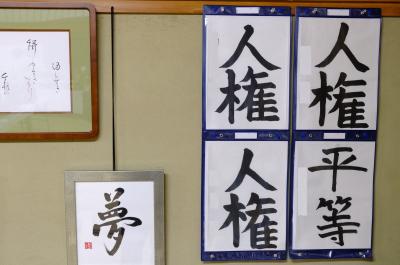 人権
人権
人権
平等
夢